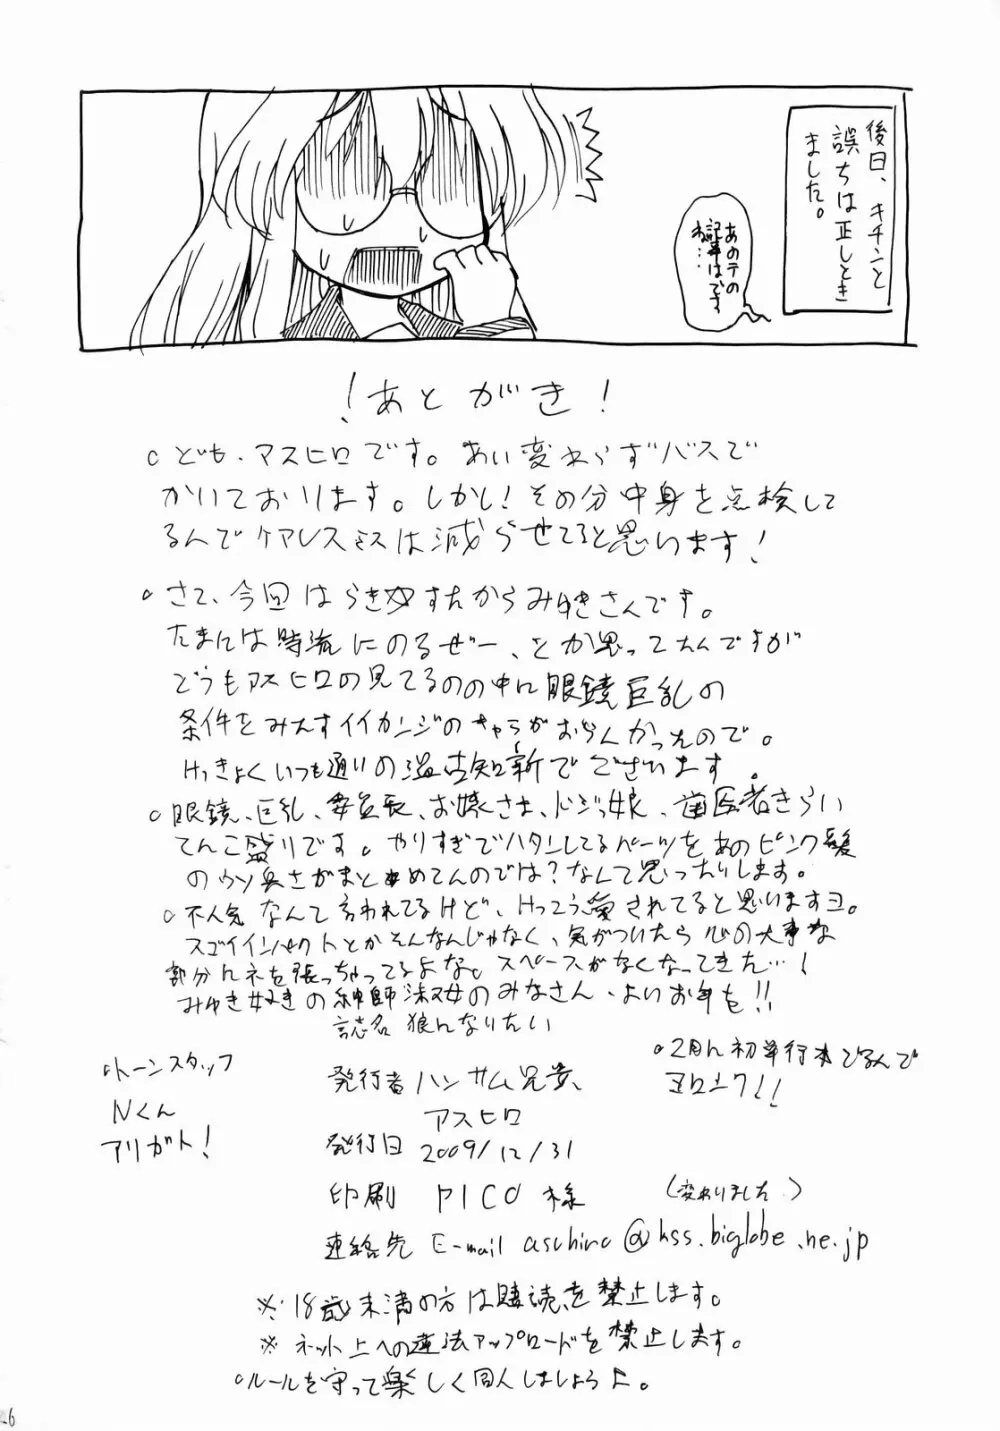 後日、キチンと
誤ちは正しとき
ました。
あのテの
記事はです
ね…
!あとがき!
○ども、アスヒロです。あい変わらずバスで
かいております。しかし!その分中身を点検して
るんでケアレスミスは減らせてると思います!
○さて、今回はらき☆すたからみゆきさんです。
たまには時流にのるぜー、とか思ってたんですが
どうもアスヒロの見てるのの中に眼鏡巨乳の
条件をみたすイイカンジのキャラがおらんかったので。
けっきょくいつも通りの温古知新でございます。
○眼鏡、巨乳、委員長、お嬢さま、ドジッ娘、歯医者きらい
てんこ盛りです。やりすぎでハタンしてるパーツをあのピンク髪
のウソ臭さがまとめてんのでは?なんて思ったりします。
○不人気なんて言われてるけど、けっこう愛されてると思いますヨ。
スゴイインパクトとかそんなんじゃなく、気がついたら心の大事な
部分にネを張っちゃってるよな。スペースがなくなってきた…!
みゆき好きの紳師淑女のみなさん、よいお年を!!
誌名 狼になりたい
○トーンスタッフ
Nくん
アリガト!
発行者 ハンサム兄貴、
アスヒロ
○2月に初単行本でるんで
ヨロシク!!
発行日 2009/12/31
印刷 PICO様
(変わりました)
連絡先 E-mail asuhiro@kss.biglobe.ne.jp
※18歳未満の方は購読を禁止します。
※ネット上への違法アップロードを禁止します。
○ルールを守って楽しく同人しましょうよ。